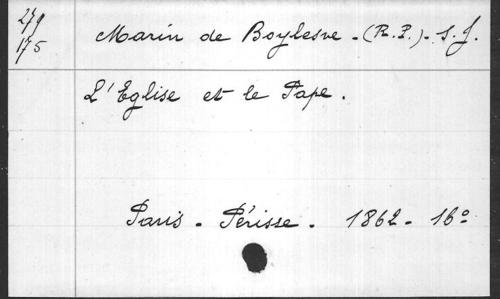 279
175
Marin de Boylesve - (R. P.) - S. J.
L'Eglise et le Pape.
Paris - Périsse - 1862 - 16º